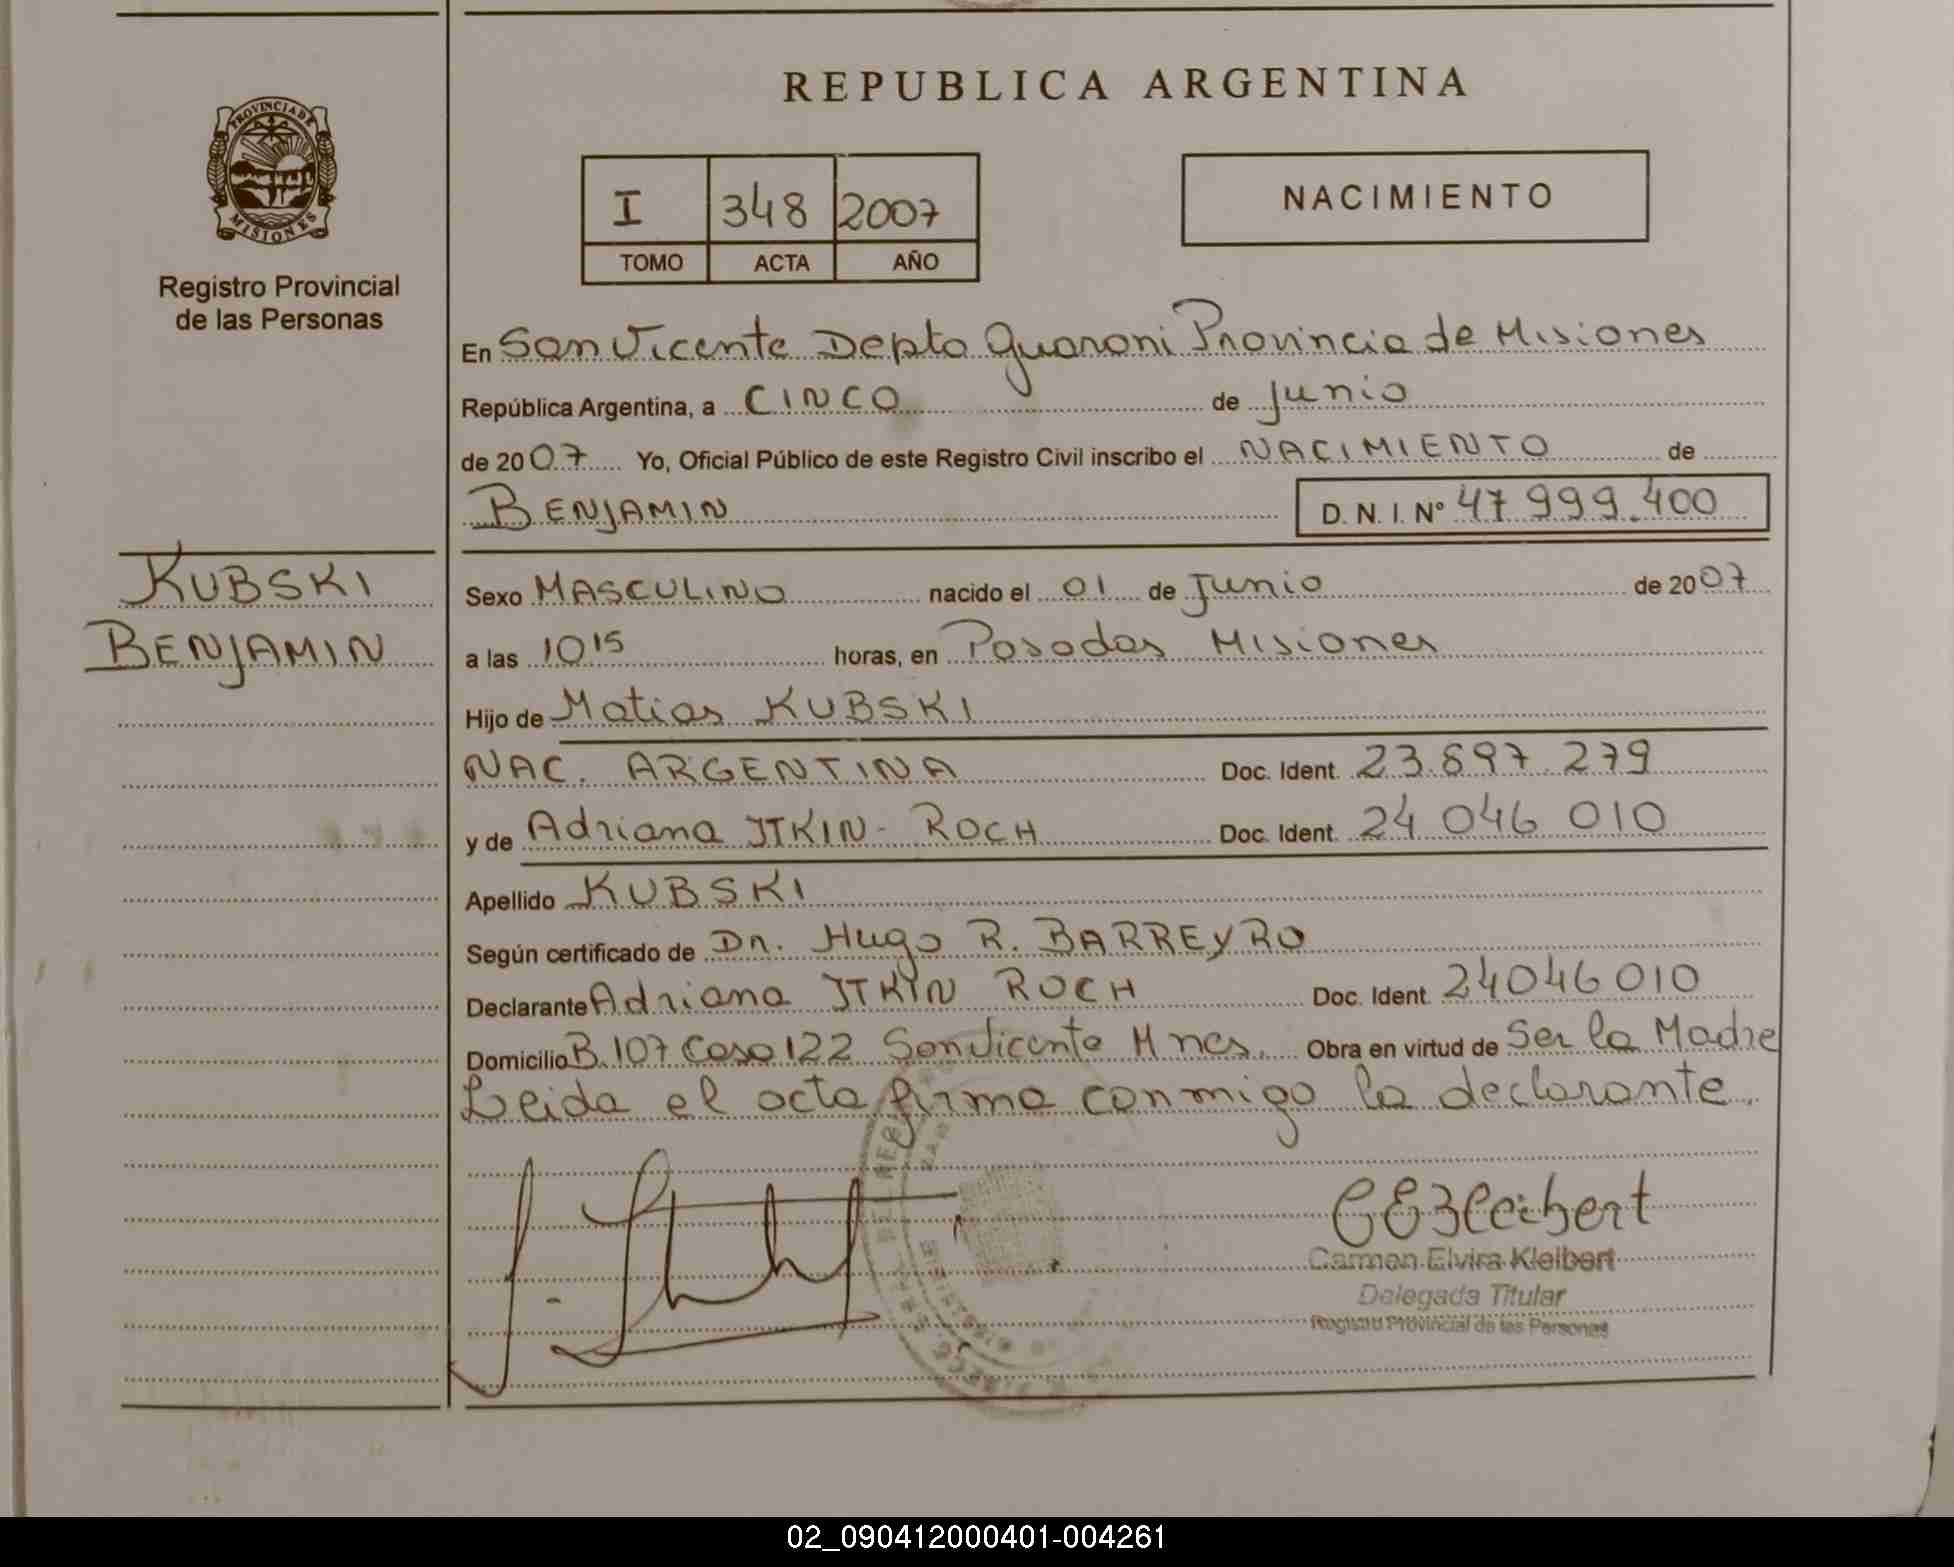 REPUBLICA ARGENTINA
PROVINCIA DE
MISIONES
Registro Provincial
de las Personas
I 348 2007
TOMO ACTA AÑO
NACIMIENTO
En San Vicente Depto Guarani Provincia de Misiones
República Argentina, a CINCO de Junio
de 2007 Yo, Oficial Público de este Registro Civil inscribo el NACIMIENTO de
BENJAMIN D. N. I. Nº 47 999.400
KUBSKI
BENJAMIN
Sexo MASCULINO nacido el 01 de Junio de 2007
a las 10 15 horas, en Posadas Misiones
Hijo de Matias KUBSKI
NAC. ARGENTINA Doc. Ident. 23.897.279
y de Adriana ITKIN - ROCH Doc. Ident. 24 046 010
Apellido KUBSKI
Según certificado de Dr. Hugo R. BARREYRO
Declarante Adriana ITKIN ROCH Doc. Ident. 24046010
Domicilio B. 107 Casa 122 San Vicente Mnes. Obra en virtud de Ser la Madre
Leida el acta firma conmigo la declarante.
Carmen Elvira Kleibert
Delegada Titular
Registro Provincial de las Personas
02_090412000401-004261